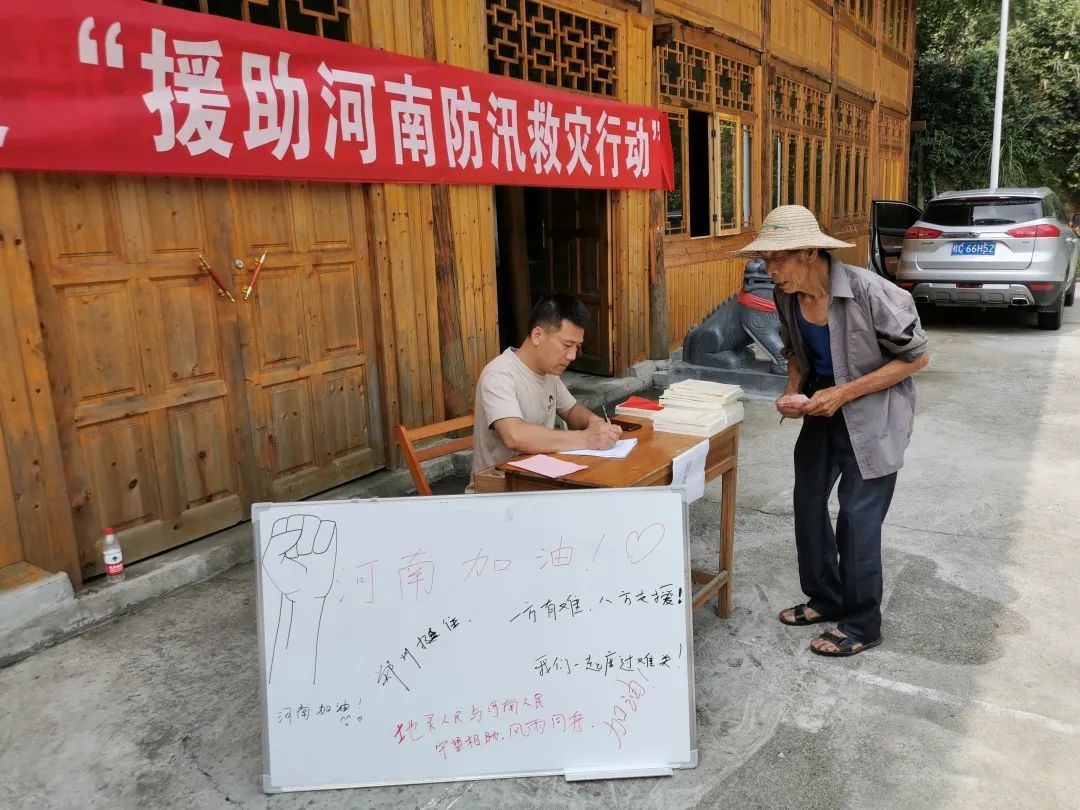 “援助河南防汛救灾行动”
66H52
河南加油！
一方有难，八方支援！
郑州挺住，
我们一起度过难关！
河南加油！
地灵人民与河南人民
守望相助，风雨同舟，
加油！